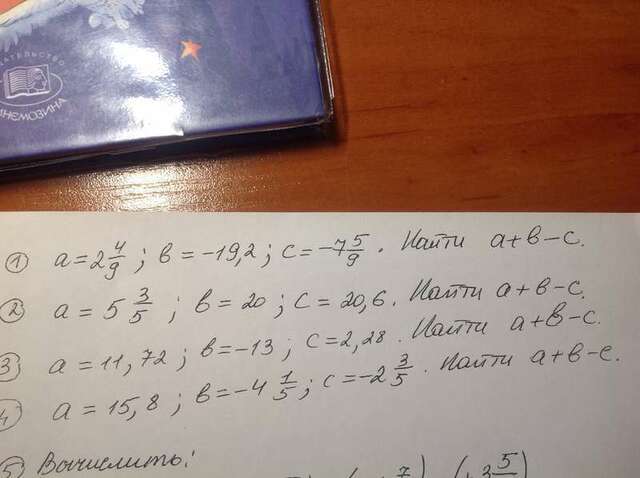 ИЗДАТЕЛЬСТВО
МНЕМОЗИНА
1 a = 2 4/9 ; в = -19,2 ; c = -7 5/9 . Найти a+в-c.
2 a = 5 3/5 ; в = 20 ; c = 20,6. Найти a+в-c.
3 a = 11,72 ; в = -13 ; c = 2,28. Найти a+в-c.
4 a = 15,8 ; в = -4 1/5 ; c = -2 3/5 . Найти a+в-c.
5 Вычислить: